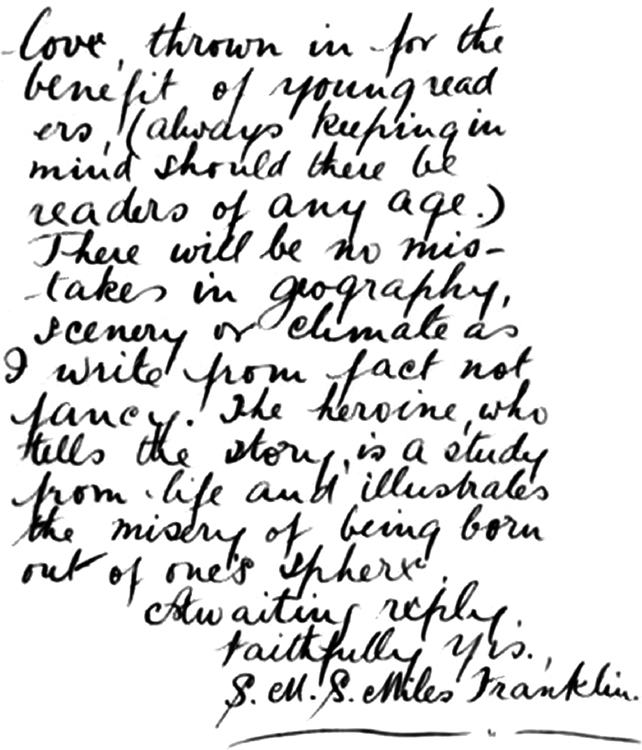 Love, thrown in for the
benefit of young read
ers, (always keeping in
mind should there be
readers of any age.)
There will be no mis-
takes in geography,
scenery or climate as
I write from fact not
fancy. The heroine, who
tells the story, is a study
from life and illustrates
the misery of being born
out of one's sphere.
Awaiting reply.
Faithfully yrs.,
S. M. S. Miles Franklin.